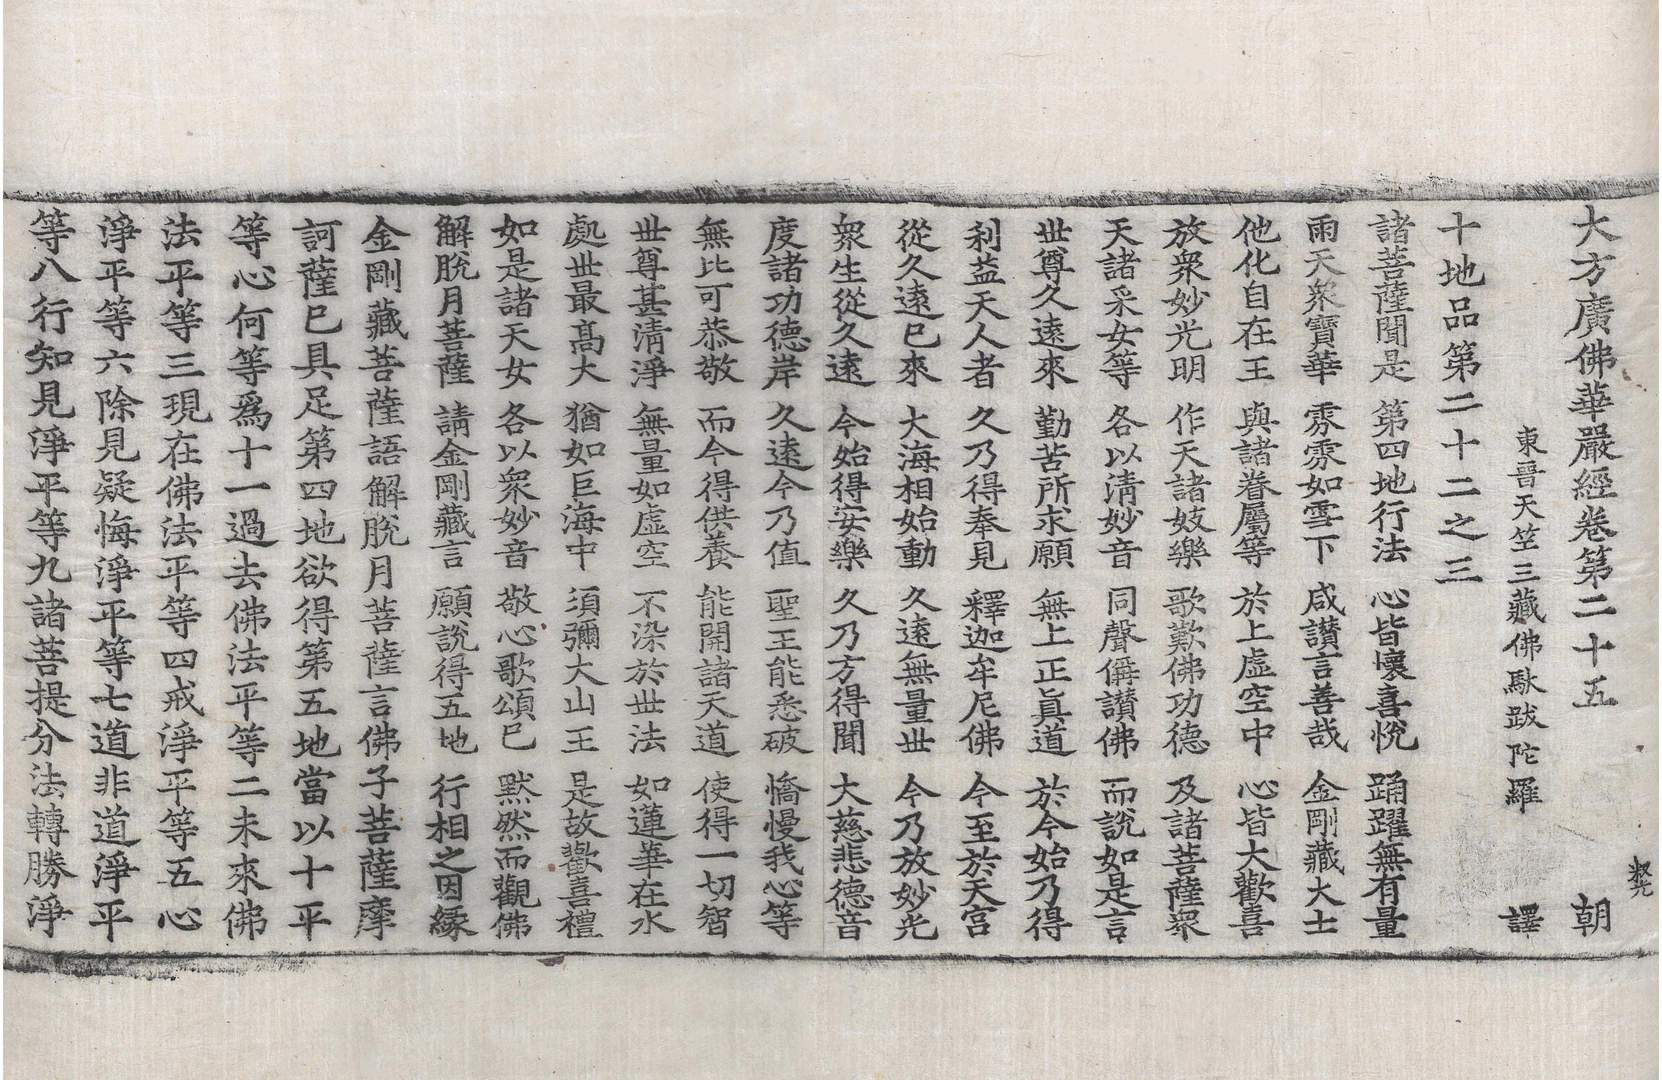 大方廣佛華嚴經卷第二十五 朝
東晉天竺三藏佛馱跋陀羅 譯
十地品第二十二之三
諸菩薩聞是 第四地行法 心皆懷喜悅 踊躍無有量
雨天衆寶華 雰雰如雪下 咸讃言善哉 金剛藏大士
他化自在王 與諸眷屬等 於上虛空中 心皆大歡喜
放衆妙光明 作天諸妓樂 歌歎佛功德 及諸菩薩衆
天諸采女等 各以清妙音 同聲俱讃佛 而說如是言
世尊久遠來 勤苦所求願 無上正眞道 於今始乃得
利益天人者 久乃得奉見 釋迦牟尼佛 今至於天宮
從久遠已來 大海相始動 久遠無量世 今乃放妙光
衆生從久遠 今始得安樂 久乃方得聞 大慈悲德音
度諸功德岸 久遠今乃值 聖王能悉破 憍慢我心等
無比可恭敬 而今得供養 能開諸天道 使得一切智
世尊甚清淨 無量如虛空 不染於世法 如蓮華在水
處世最高大 猶如巨海中 須彌大山王 是故歡喜禮
如是諸天女 各以衆妙音 敬心歌頌已 默然而觀佛
解脫月菩薩 請金剛藏言 願說得五地 行相之因緣
金剛藏菩薩語解脫月菩薩言佛子菩薩摩
訶薩已具足第四地欲得第五地當以十平
等心何等爲十一過去佛法平等二未來佛
法平等三現在佛法平等四戒淨平等五心
淨平等六除見疑悔淨平等七道非道淨平
等八行知見淨平等九諸菩提分法轉勝淨